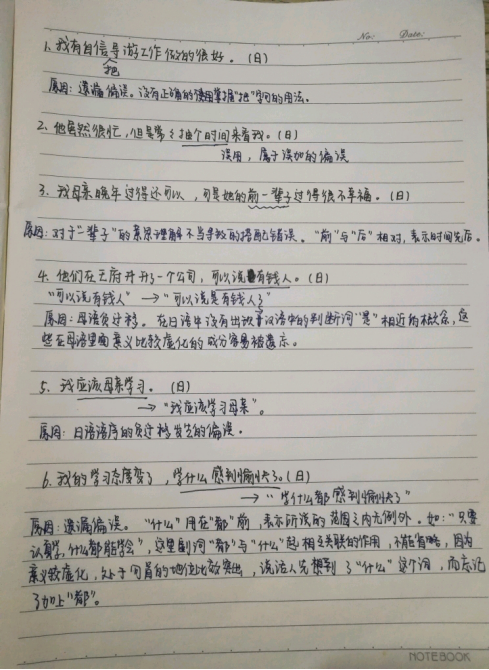 No:
Date:
1. 我有自信导游工作做的很好。(日)
把
原因:遗漏偏误。没有正确的使用掌握"把"字句的用法。
2. 他虽然很忙,但是常常抽个时间来看我。(日)
误用,属于误加的偏误
3. 我母亲晚年过得还可以,可是她的前一辈子过得很不幸福。(日)
原因:对于"一辈子"的意思理解不当导致的搭配错误。"前"与"后"相对,表示时间先后。
4. 他们在王府井开了一个公司,可以说有钱人。(日)
"可以说有钱人" → "可以说是有钱人了"
原因:母语负迁移。在日语中没有出现于汉语中的判断词"是"相近的概念,这
些在母语里面意义比较虚化的成分容易被遗忘。
5. 我应该母亲学习。(日)
→ "我应该学习母亲"。
原因:日语语序的负迁移发生的偏误。
6. 我的学习态度变了,学什么感到愉快了。(日)
→ "学什么都感到愉快了"
原因:遗漏偏误。"什么"用在"都"前,表示所说的范围之内无例外。如:"只要
认真学,什么都能学会",这里副词"都"与"什么"起相互关联的作用,不能省略,因为
意义较虚化,处于
的地位比较突出,说话人先想到了"什么"这个词,而忘记
了加上"都"。
NOTEBOOK